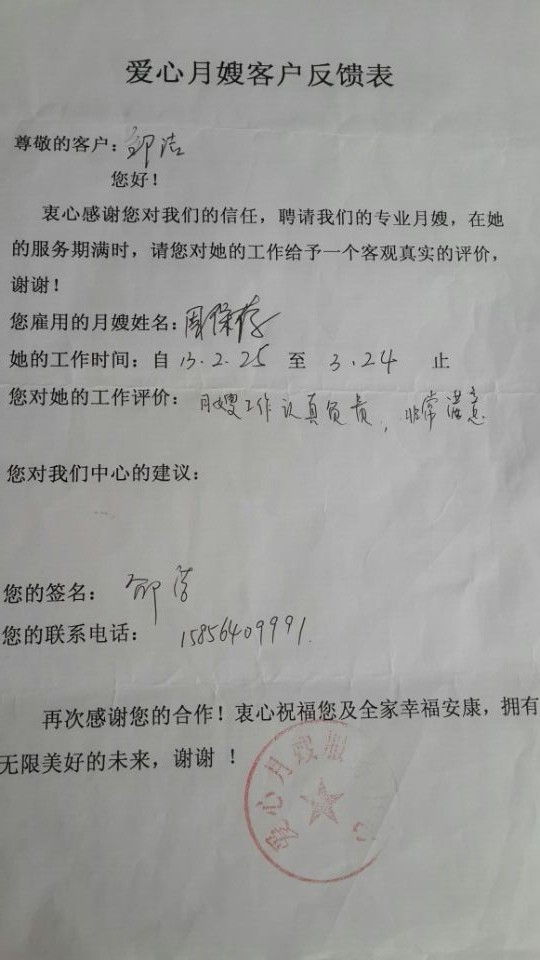 爱心月嫂客户反馈表
尊敬的客户：邹洁
您好！
衷心感谢您对我们的信任，聘请我们的专业月嫂，在她
的服务期满时，请您对她的工作给予一个客观真实的评价，
谢谢！
您雇用的月嫂姓名：周保存
她的工作时间：自 13.2.25 至 3.24 止
您对她的工作评价：月嫂工作认真负责，非常满意
您对我们中心的建议：
您的签名：
您的联系电话：15856409991.
再次感谢您的合作！衷心祝福您及全家幸福安康，拥有
无限美好的未来，谢谢！
爱心月嫂服 心